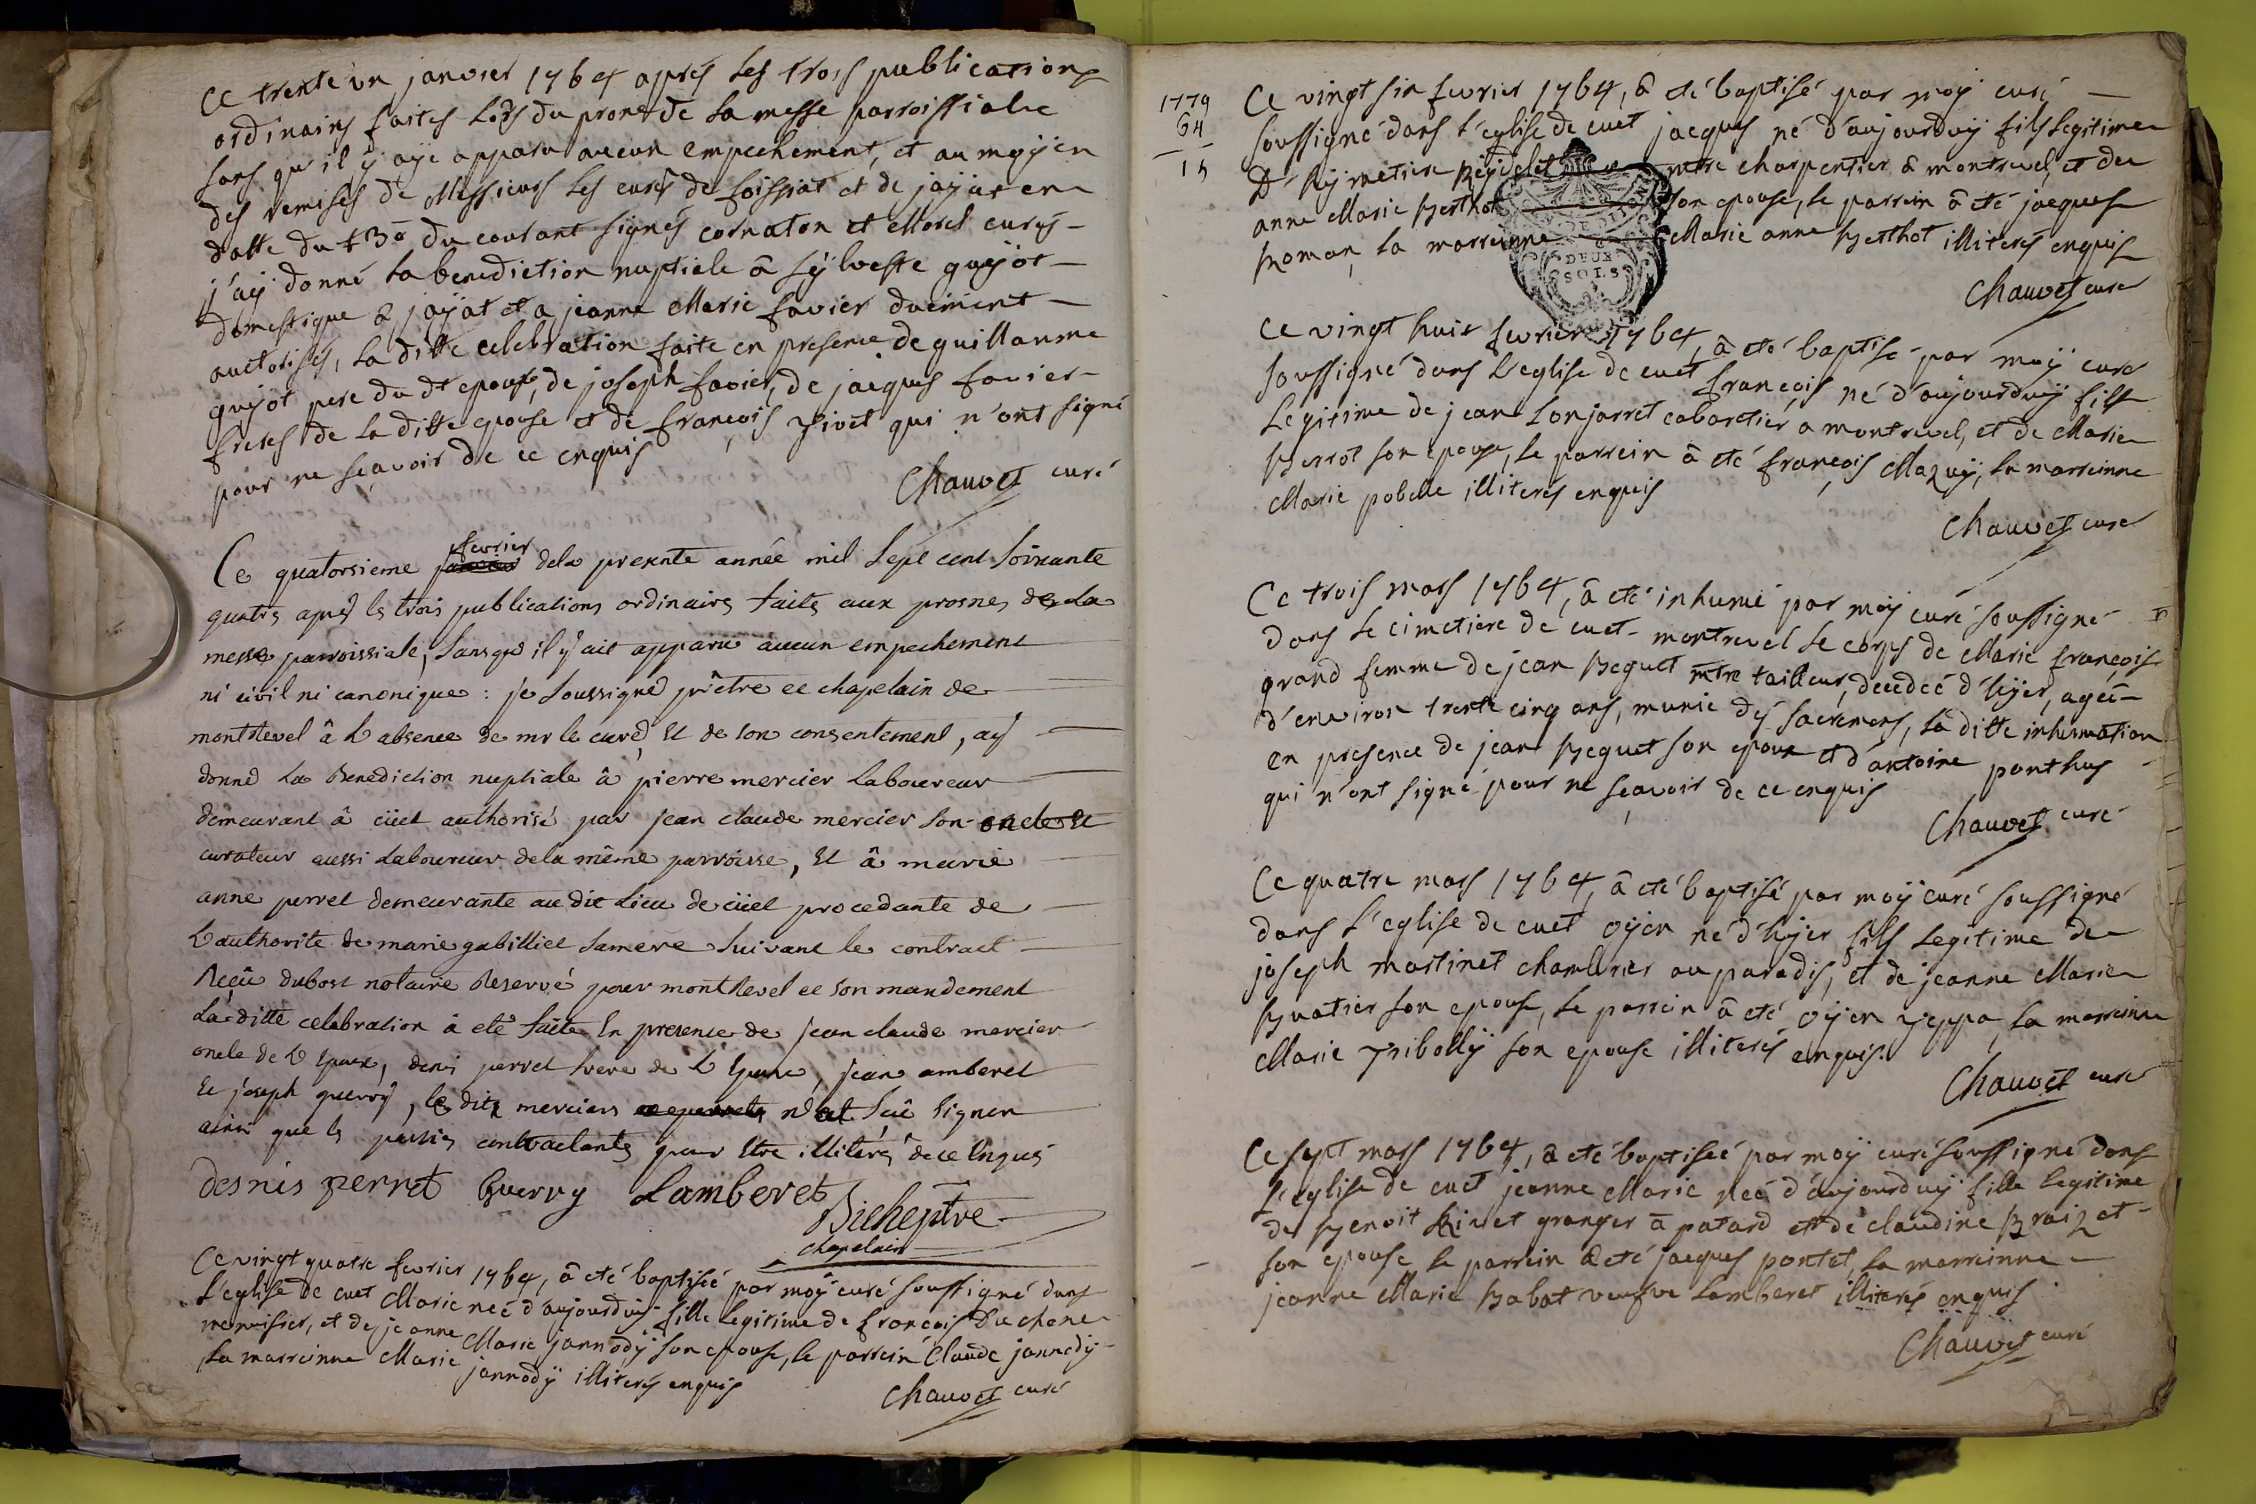 Ce trente un janvier 1764 aprés les trois publications
ordinaires faites lors du prone de la messe parroissiale
sans qu'il y aye apparu aucun empechement, et au moÿen
des remises de Messieurs les curés de foissiat et de jaÿat en
datte du 30e du courant signés cornaton et Morel curés
j'aÿ donné la benediction nuptiale â sÿlvestre guÿot
domestique â jaÿat et a jeanne Marie favier duement
auctorisés, la ditte celebration faite en presence de guillaume
guÿot pere du dt epoux, de joseph favier, de jacques favier
freres de la ditte epouse et de françois pivet qui n'ont signé
pour ne sçavoir de ce enquis
Chauvet curé
Ce quatorsieme fevrier dela presente année mil sept cent soixante
quatre après les trois publications ordinaires faites aux prosnes de La
messe parroissiale, sans qu'il y ait apparu aucun empechement
ni civil ni canonique : je soussigné prêtre et chapelain de
montrevel â L'absence de mr le curé, et de son consentement, ay
donné La Benediction nuptiale â pierre mercier Laboureur
demeurant â cüet authorisé par jean claude mercier son oncle et
curateur aussi Laboureur dela même parroisse, et â marie
anne perret demeurante au dit Lieu de cüet procedante de
L'authorite de marie gabilliet sa mere suivant le contract
Reçû dubost notaire Reservé pour montrevel et son mandement
La ditte celebration â eté faite en presence de jean claude mercier
oncle de L'epoux, denis perret frere de L'epouse, jean amberet
et joseph guerry, le dit mercier n'at sçû signer
ainsi que les parties contractantes pour etre illiterés de ce enquis
desnis perret Guerry Lamberet
Bicheptre
chapelain
Ce vingt quatre fevrier 1764, â eté baptisée par moÿ curé soussigné dans
l'eglise de cuet Marie neé d'aujourduÿ fille legitime de françois Duchene
menuisier, et de jeanne Marie jannodÿ son epouse, le parrein Claude jannodÿ
la marreinne Marie jannodÿ illiterés enquis
Chauvet curé
1779
64
15
Ce vingt six fevrier 1764, â eté baptisé par moÿ curé
soussigné dans l'eglise de cuet jacques né d'aujourduÿ fils legitime
mtre charpentier â montrevel, et de
anne Marie Berthot son epouse, le parrein â eté jacques
Roman, la marreinne Marie anne Berthot illiterés enquis
Chauvet curé
DEUX
SOLS
Ce vingt huit fevrier 1764, â eté baptisé par moÿ curé
soussigné dans l'eglise de cuet françois né d'aujourduÿ fils
Legitime de jean Lonjarret cabaretier a montrevel, et de Marie
Berrot son epouse, le parrein â eté françois Mazuÿ, la marreinne
Marie pobelle illiterés enquis
Chauvet curé
Ce trois mars 1764, â eté inhumé par moÿ curé soussigné
dans le cimetiere de cuet-montrevel le corps de Marie françoise
grand femme de jean Beguet mtre tailleur, decedeé d'hÿer, ageé
d'environ trente cinq ans, munie des sacremens, la ditte inhumation
en presence de jean Beguet son epoux et d'antoine ponthus
qui n'ont signé pour ne sçavoir de ce enquis
Chauvet curé
Ce quatre mars 1764, â eté baptisé par moÿ curé soussigné
dans l'eglise de cuet oÿen né d'hÿer fils legitime de
joseph martinet chambrier au paradis, et de jeanne Marie
Buatier son epouse, le parrein â eté oÿen peppa, la marreinne
Marie Tribollÿ son epouse illiterés enquis
Chauvet curé
Ce sept mars 1764, â eté baptiseé par moÿ curé soussigné dans
l'eglise de cuet jeanne Marie neé d'aujourduÿ fille legitime
de Benoit Rivet granger â patard et de claudine Braizet
son epouse le parrein â eté jacques pontet, la marreinne
jeanne Marie Babat veufve Lamberet illiterés enquis
Chauvet curé